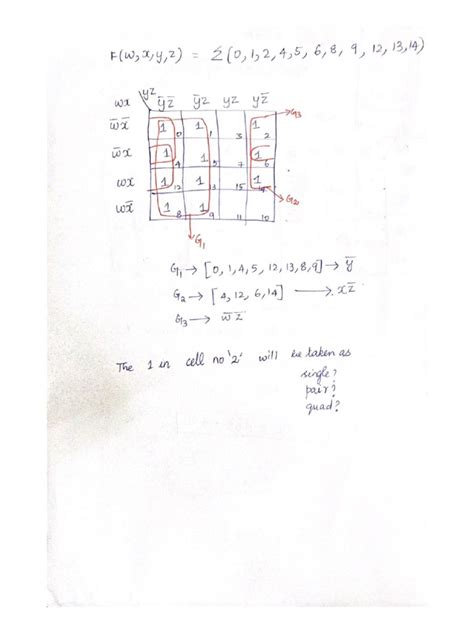 F(w,x,y,z) = Σ(0,1,2,4,5,6,8,9,12,13,14)
yz
wx y̅z̅ y̅z yz yz̅
G3
w̅x̅ 1 0 1 1 3 1 2
w̅x 1 4 1 5 7 1 6
wx 1 12 1 13 15 1 14
G2
wx̅ 1 8 1 9 11 10
G1
G1 → [0,1,4,5,12,13,8,9] → y̅
G2 → [4,12,6,14] → xz̅
G3 → w̅ z̅
The 1 in cell no '2' will be taken as
single?
pair?
quad?